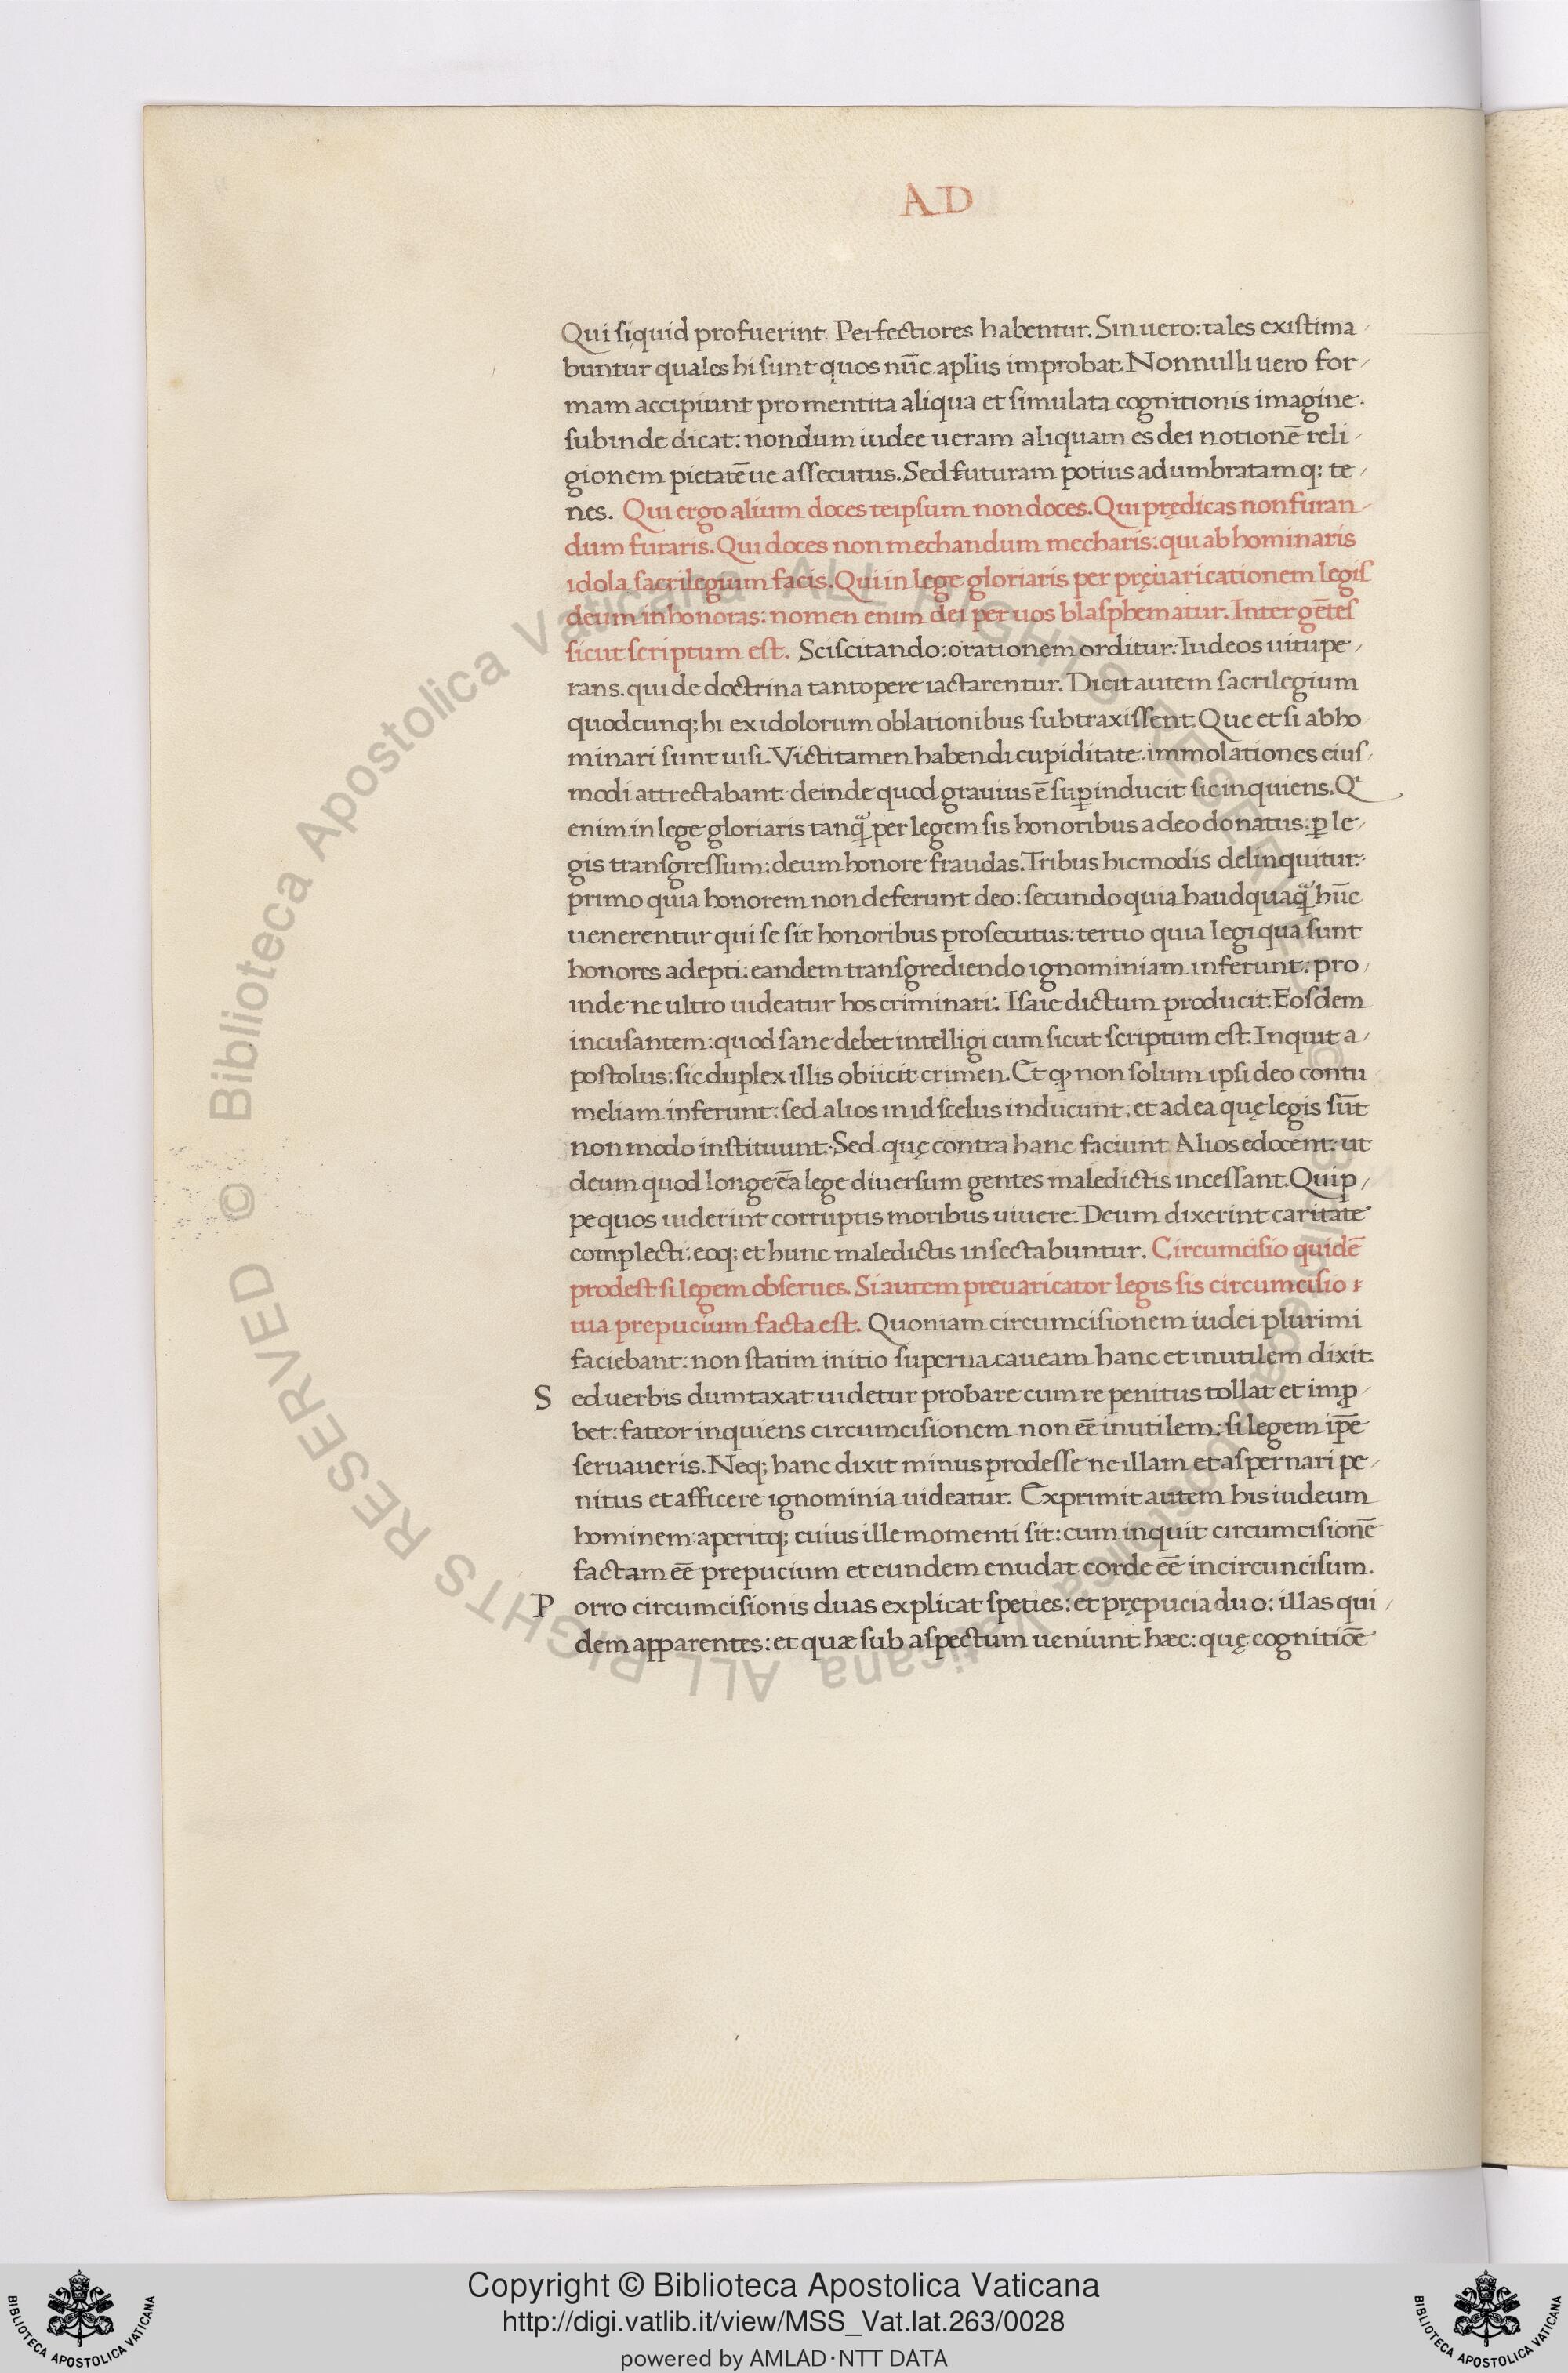 AD
Qui siquid profuerint. Perfectiores habentur. Sin uero: tales existima
buntur quales hi sunt quos nūc apl's improbat. Nonnulli uero for
mam accipiunt pro mentita aliqua et simulata cognitionis imagine.
subinde dicat: nondum iudee ueram aliquam es dei notionē reli
gionem pietatēue assecutus. Sed futuram potius adumbratamq; te
nes. Qui ergo alium doces teipsum non doces. Qui prędicas non furan
dum furaris. Qui doces non mechandum mecharis: qui abhominaris
idola sacrilegium facis. Qui in lege gloriaris per pręuaricationem legis
deum inhonoras: nomen enim dei per uos blasphematur. Inter gētes
sicut scriptum est. Sciscitando: orationem orditur: Iudeos uitupe
rans. qui de doctrina tantopere iactarentur. Dicit autem sacrilegium
quodcunq; hi ex idolorum oblationibus subtraxissent. Que et si abho
minari sunt uisi. Victi tamen habendi cupiditate. immolationes eius
modi attrectabant. deinde quod grauius ē suꝑinducit sic inquiens. Qͥ
enim in lege gloriaris tanq̃ per legem sis honoribus a deo donatus: ꝑ le
gis transgressum: deum honore fraudas. Tribus hic modis delinquitur:
primo quia honorem non deferunt deo: secundo quia haudquaq̃ hūc
uenerentur qui se sit honoribus prosecutus: tertio quia legi qua sunt
honores adepti: eandem transgrediendo ignominiam inferunt: pro
inde ne ultro uideatur hos criminari: Isaie dictum producit. Eosdem
incusantem: quod sane debet intelligi cum sicut scriptum est. Inquit a
postolus: sic duplex illis obiicit crimen. Et ꝙ non solum ipsi deo contu
meliam inferunt: sed alios in id scelus inducunt. et ad ea quę legis sūt
non modo instituunt. Sed quę contra hanc faciunt Alios edocent: ut
deum quod longe ē a lege diuersum gentes maledictis incessant. Quip
pe quos uiderint corruptis moribus uiuere. Deum dixerint caritate
complecti: eoq; et hunc maledictis insectabuntur. Circumcisio quidē
prodest si legem obserues. Si autem preuaricator legis sis circumcisio
tua prepucium facta est. Quoniam circumcisionem iudei plurimi
faciebant: non statim initio superuacaueam hanc et inutilem dixit.
S ed uerbis dumtaxat uidetur probare cum re penitus tollat et imꝓ
bet: fateor inquiens circumcisionem non eē inutilem: si legem ip̄e
seruaueris. Neq; hanc dixit minus prodesse ne illam et aspernari pe
nitus et afficere ignominia uideatur. Exprimit autem his iudeum
hominem: aperitq; cuius ille momenti sit: cum inquit circumcisionē
factam eē prepucium et eundem enudat corde eē incircuncisum.
P orro circumcisionis duas explicat speties: et prępucia duo: illas qui
dem apparentes: et quæ sub aspectum ueniunt hæc: quę cognitiōe
© Biblioteca Apostolica Vaticana ALL RIGHTS RESERVED
© Biblioteca Apostolica Vaticana ALL RIGHTS RESERVED
BIBLIOTECA APOSTOLICA VATICANA
Copyright © Biblioteca Apostolica Vaticana
http://digi.vatlib.it/view/MSS_Vat.lat.263/0028
powered by AMLAD·NTT DATA
BIBLIOTECA APOSTOLICA VATICANA